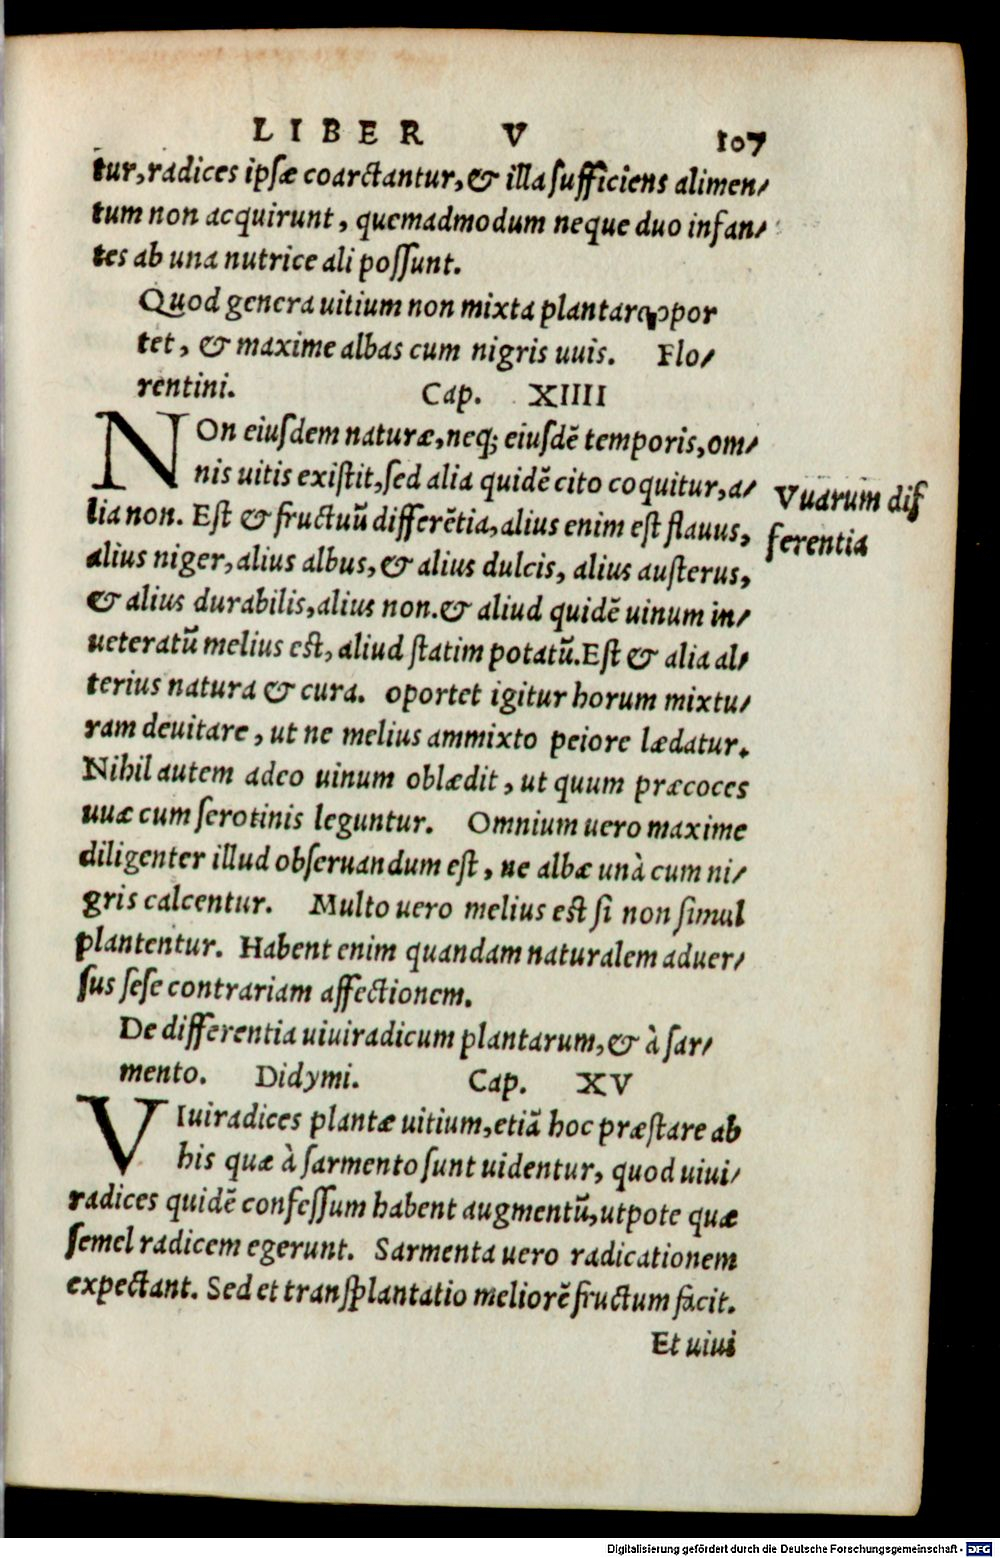 LIBER V 107
tur, radices ipsæ coarctantur, & illa sufficiens alimen/
tum non acquirunt, quemadmodum neque duo infan/
tes ab una nutrice ali possunt.
Quod genera uitium non mixta plantare opor
tet, & maxime albas cum nigris uuis. Flo/
rentini. Cap. XIIII
NOn eiusdem naturæ, neq; eiusdē temporis, om/
nis uitis existit, sed alia quidē cito coquitur, a/
Vuarum dif
lia non. Est & fructuū differētia, alius enim est flauus,
ferentia
alius niger, alius albus, & alius dulcis, alius austerus,
& alius durabilis, alius non. & aliud quidē uinum in/
ueteratū melius est, aliud statim potatū. Est & alia al/
terius natura & cura. oportet igitur horum mixtu/
ram deuitare, ut ne melius ammixto peiore lædatur.
Nihil autem adeo uinum oblædit, ut quum præcoces
uuæ cum serotinis leguntur. Omnium uero maxime
diligenter illud obseruandum est, ne albæ unà cum ni/
gris calcentur. Multo uero melius est si non simul
plantentur. Habent enim quandam naturalem aduer/
sus sese contrariam affectionem.
De differentia uiuiradicum plantarum, & à sar/
mento. Didymi. Cap. XV
VIuiradices plantæ uitium, etiā hoc præstare ab
his quæ à sarmento sunt uidentur, quod uiui/
radices quidē confessum habent augmentū, utpote quæ
semel radicem egerunt. Sarmenta uero radicationem
expectant. Sed et transplantatio meliorē fructum facit.
Et uiui
Digitalisierung gefördert durch die Deutsche Forschungsgemeinschaft - DFG